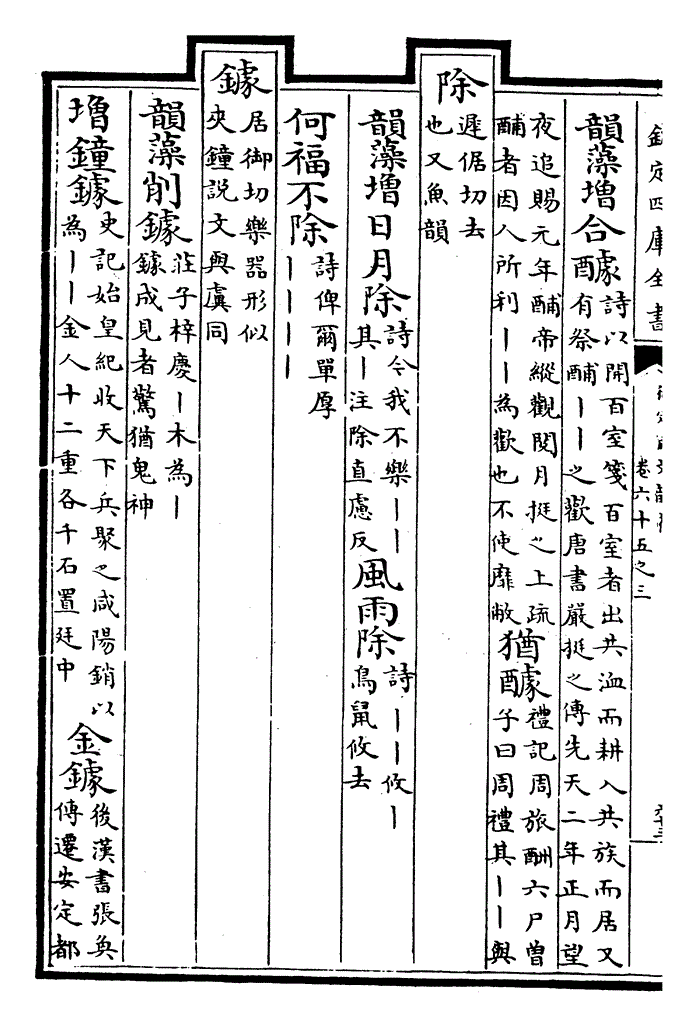 欽定四庫全書
卷六十五之三
韻藻增合醵
詩以開百室箋百室者出共洫而耕入共族而居又
有祭酺丨丨之歡唐書嚴挺之傳先天二年正月望
夜追賜元年酺帝縱觀閱月挺之上疏
酺者因人所利丨丨為歡也不使靡敝
猶醵
禮記周旅酬六尸曾
子曰周禮其丨丨與
除
遲倨切去
也又魚韻
韻藻增日月除
詩今我不樂丨丨
其丨注除直慮反
風雨除
詩丨丨攸丨
鳥鼠攸去
何福不除
詩俾爾單厚
丨丨丨丨
鐻
居御切樂器形似
夾鐘説文與虡同
韻藻削鐻
莊子梓慶丨木為丨
鐻成見者驚猶鬼神
增鐘鐻
史記始皇紀收天下兵聚之咸陽銷以
為丨丨金人十二重各千石置廷中
金鐻
後漢書張奐
傳遷安定都